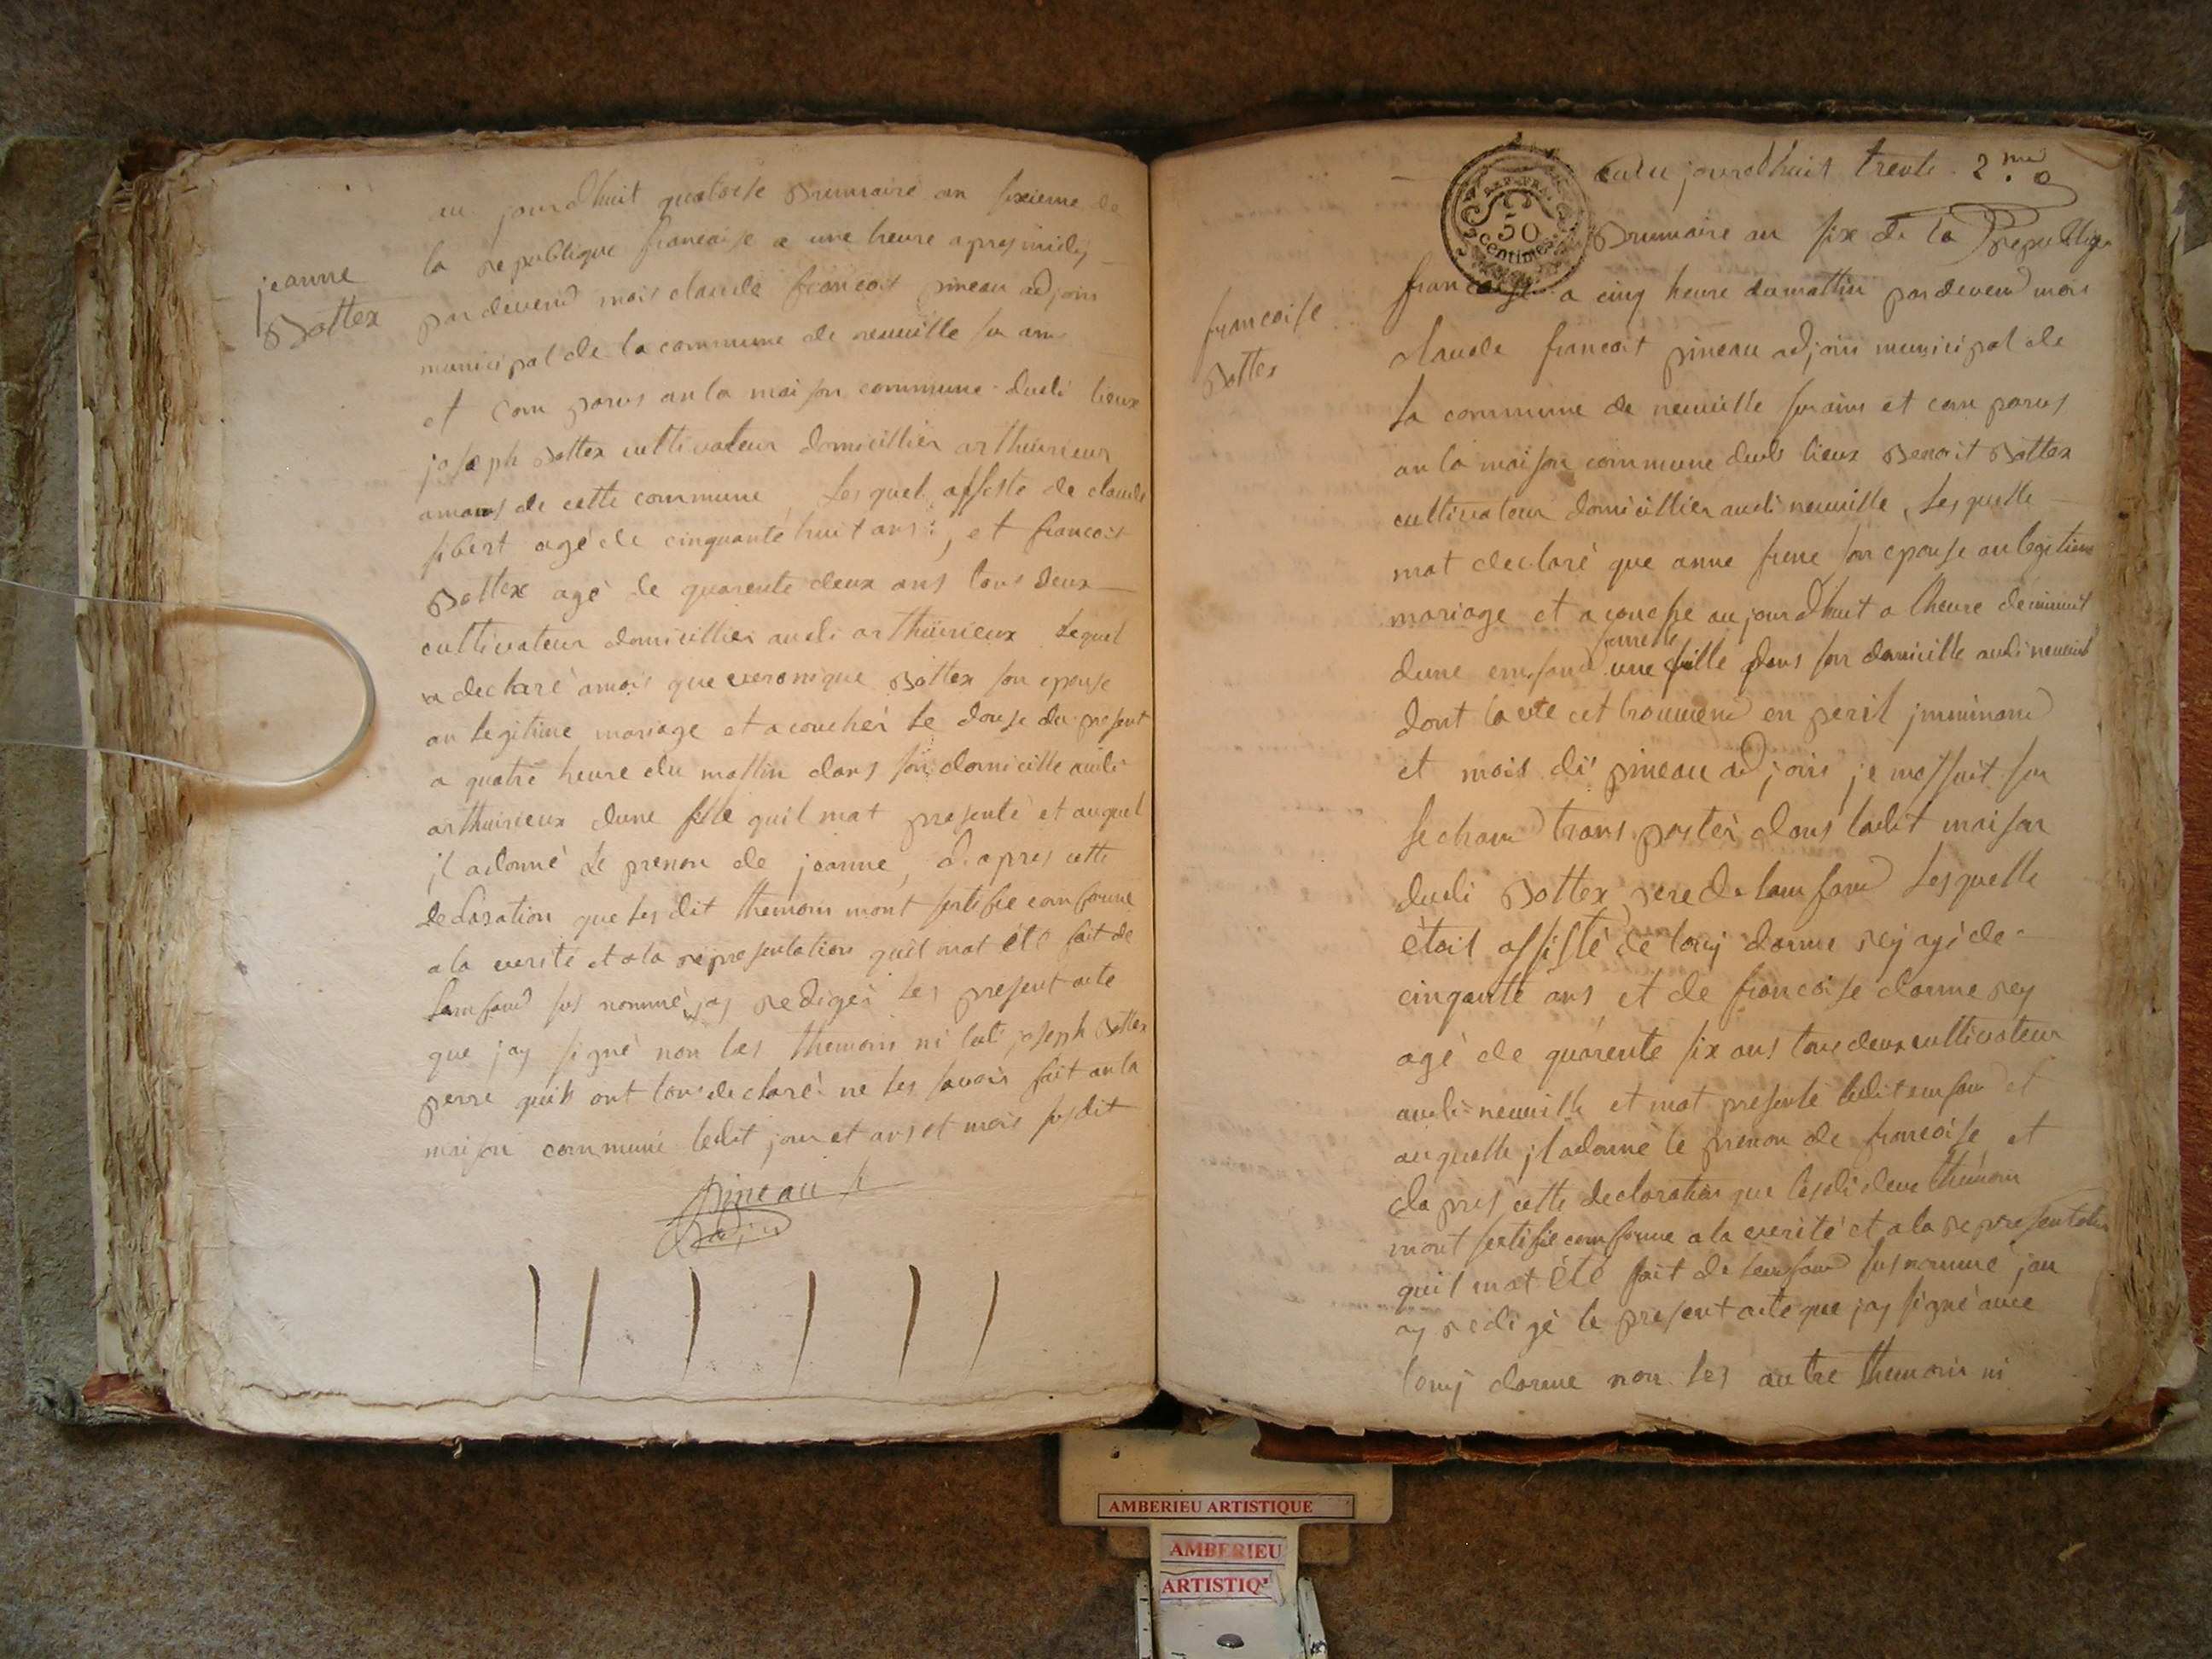 jeanne
Bottex
au jourdhuit quatorse Brumaire an sixieme de
la republique francaise a une heure apres midy
par devend mois claude francoit pineau adjoin
municipal de la commune de neuville sur ain
et com parus an la maison commune dudi lieux
joseph Bottex cultivateur domicillier arthuirieux
amons de cette commune Lesquel assisté de claude
sibert agé de cinquante huit ans, et francoit
Bottex agé de quarente deux ans tous deux
cultivateur domicillier audi arthuirieux Lequel
a declaré amois que veronique Bottex son epouse
an legitime mariage et acouchér le douse du present
a quatre heure du mattin dans son domicille audi
arthuirieux dune fille quil mat presenté et auquel
jl adonné Le prenon de jeanne, d. apres cette
declaration que les dit themoin mont sertifie conforme
a la verité et ala representation quil mat été fait de
Lamfand sus nommé jay redigér Les present acte
que jay signé non les themoin ni ledi joseph Bottex
perre quils ont tous declaré ne les savoir fait an la
maison commune ledit jour et ans et mois susdit
Pineau
adjoin
REP. FRA.
50
centimes
francoise
Bottex
au jourdhuit trente 2.me
Brumaire an six de la Republique
francaise a cinq heure dumattin pardevend mois
claude francoit pineau adjoin municipal de
la commune de neuville sur ain et com parus
an la maison commune dudi lieux Benoit Bottex
cultivateur domicillier audi neuville, Lesquelle
mat declaré que anne son epouse an legitime
mariage et acouche aujourdhuit a lheure deminuit
femelle
dune emfand une fille dans son domicille audi neuville
dont la vie est trouvend en peril jmminand
et mois di pineau adjoin je me suit sur
le chand transportér dans ladit maison
dudi Bottex pere de lamfand Lesquelle
étoit assisté de louj dorme rey agé de
cinqante ans et de francoise dorme rey
agé de quarente six ans tous deux cultivateur
audi neuville et mat presenté ledit emfand et
auquelle jl adonné le prenon de francoise et
dapres cette declaration que lesdi deux themoin
mont sertifie comforme ala verité et ala representation
quil mat été fait de lemfand susnommé jan
ay redigé le present acte que jay signé avec
louj dorme non les autre themoin ni
AMBERIEU ARTISTIQUE
AMBERIEU
ARTISTIQ